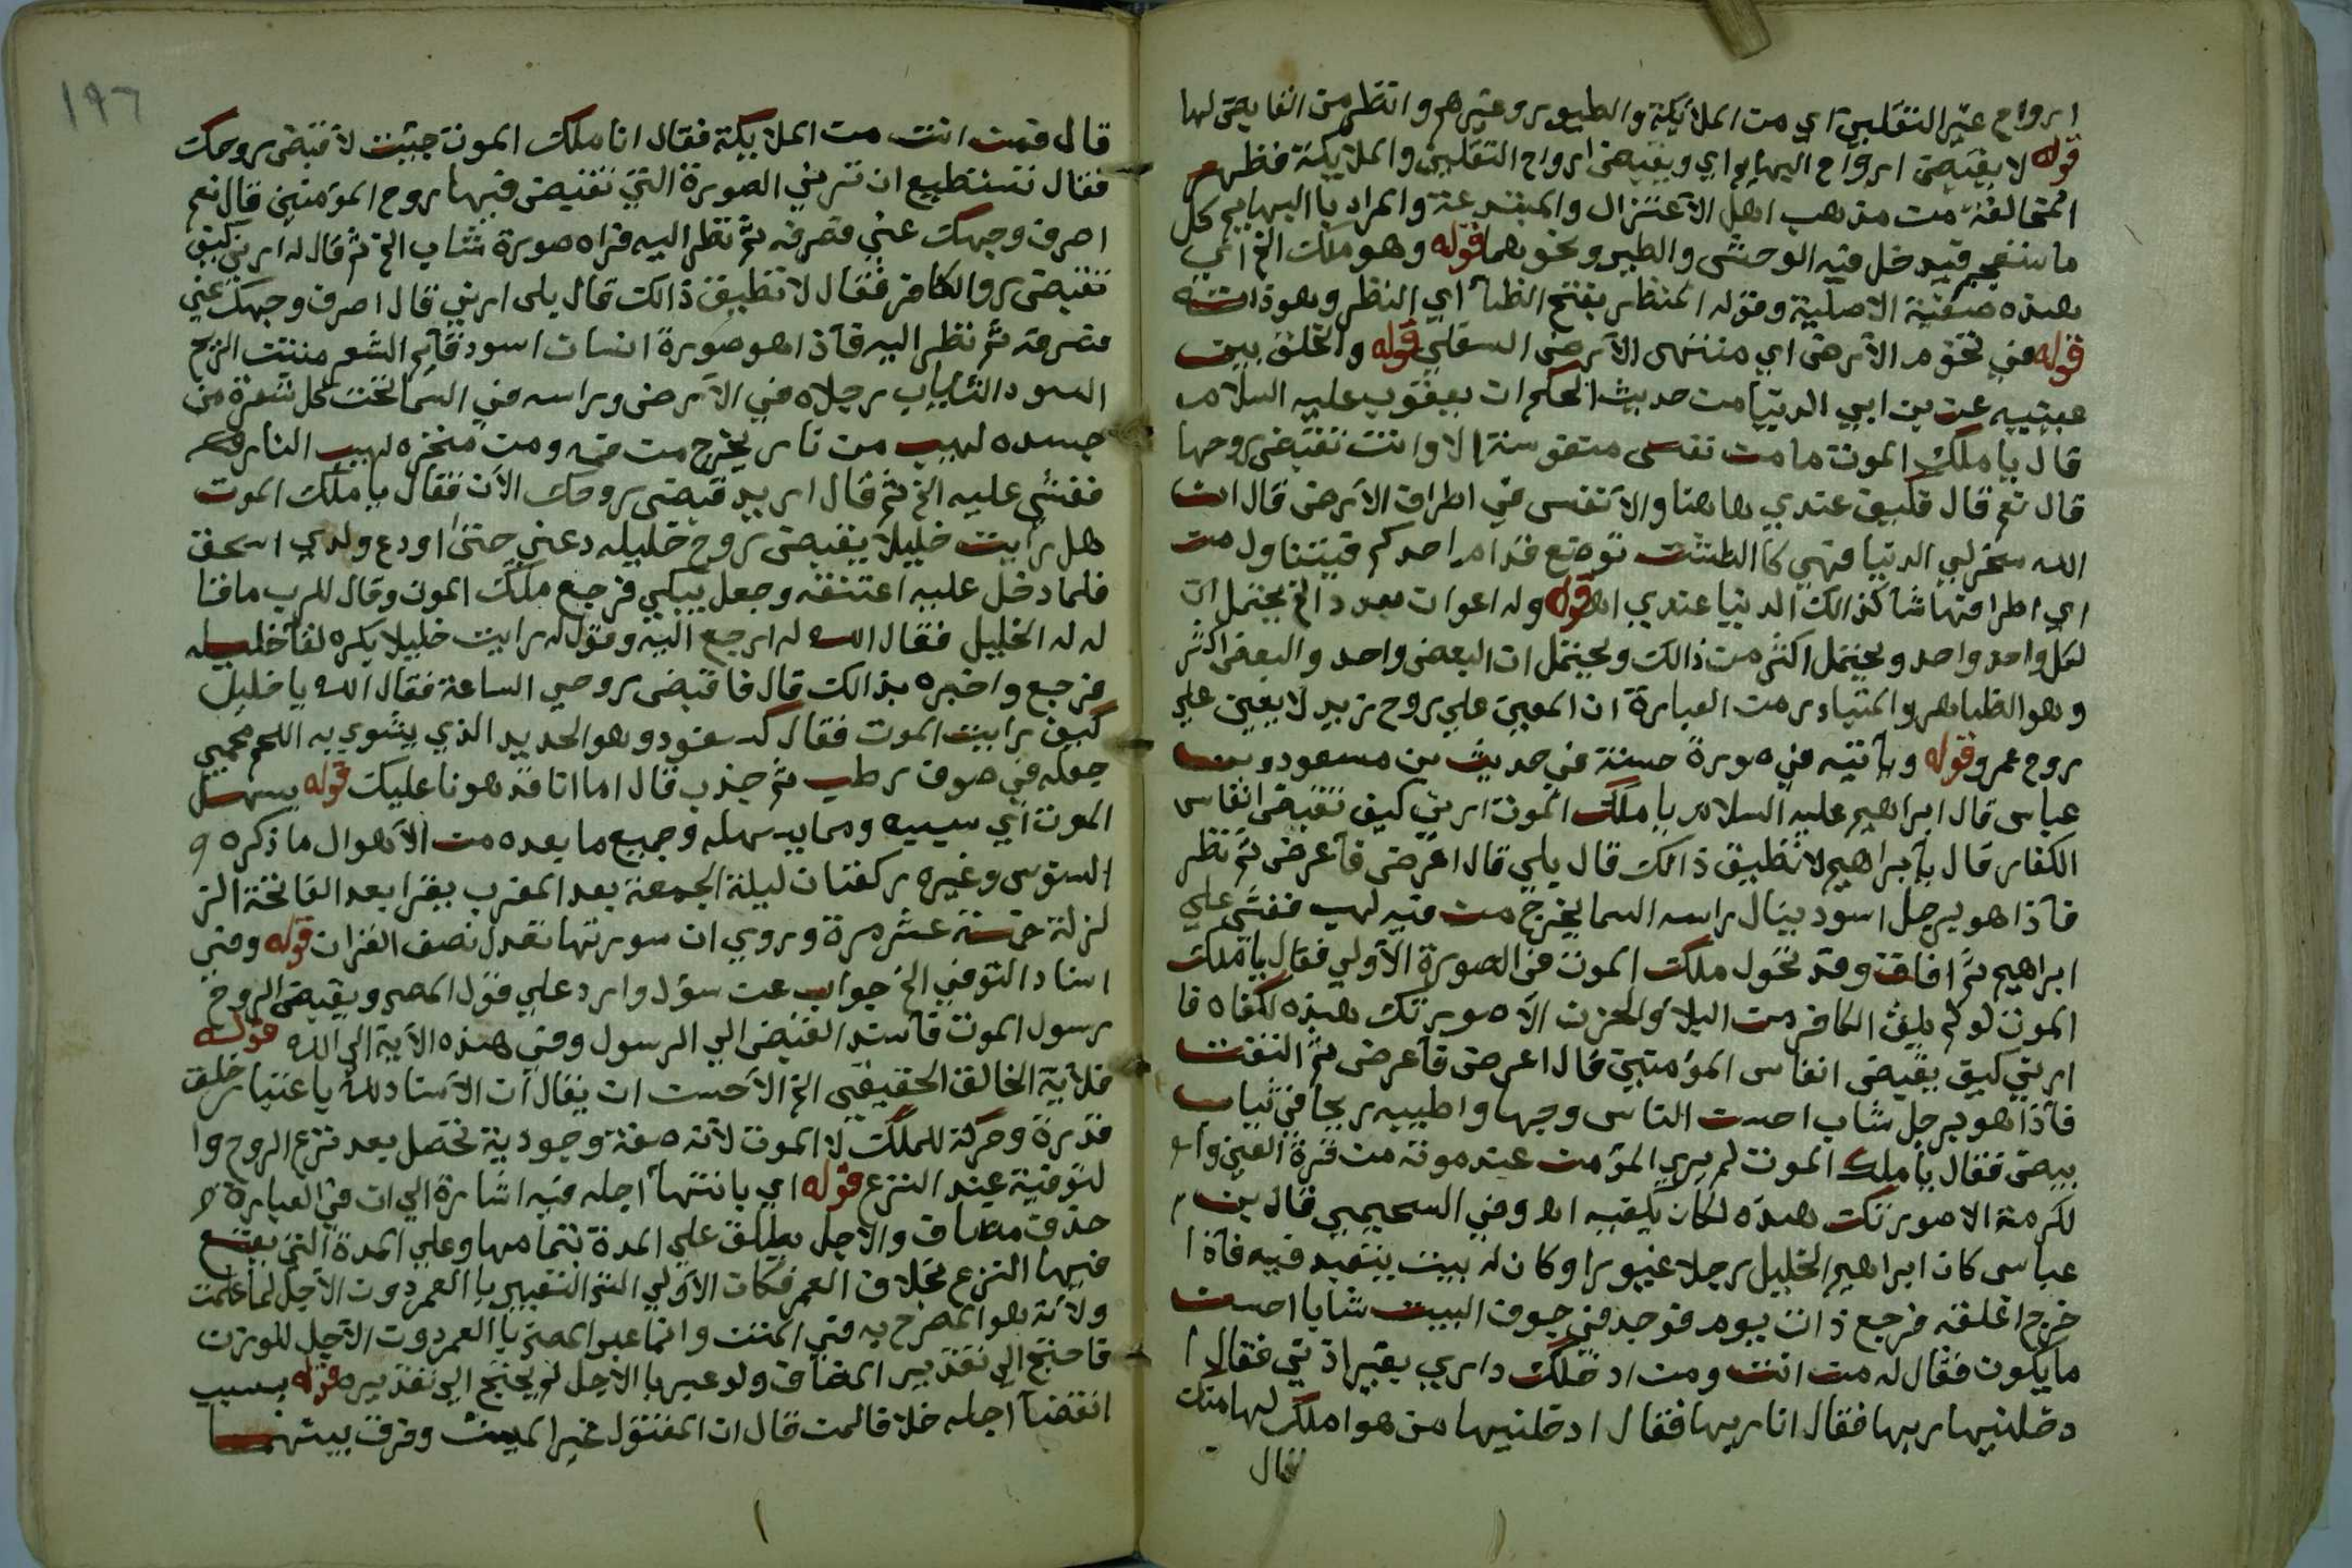 ارواح غير الثقلين اي من الملائكة والطيور وغيرهم وانظر من القابض لها
قوله لا يقبض ارواح البهايم اي ويقبض ارواح الثقلين والملايكة فظهر
المخالفة من مذهب اهل الاعتزال والمبتدعة والمراد باالبهايم كل
ما ينفجر فيدخل فيه الوحش والطير ونحوهما قوله وهو ملك الخ اي
هذه صفته الاصلية وقوله المنظر بفتح الظا اي النظر وهو ذاته
قوله في تخوم الارض اي منتهى الارض السفلي قوله والخلق بين
عينيه عن بن ابي الدنيا من حديث الحكم ان يعقوب عليه السلام
قال يا ملك الموت ما من نفس منفوسة الا وانت تقبض روحها
قال نعم قال فكيف عندي هاهنا والانفس في اطراف الارض قال ان
الله سخر لي الدنيا فهي كالطشت توضع قدام احدكم فيتناول من
اي اطرافها شا كذالك الدنيا عندي اه قوله وله اعوان بعدد الخ يحتمل ان
لكل واحد واحد ويحتمل اكثر من ذالك ويحتمل ان البعض واحد والبعض اكثر
وهو الظاهر والمتبادر من العبارة ان المعين علي روح زيد لا يعين علي
روح عمرو قوله ويأتيه في صورة حسنة في حديث بن مسعود وبن
عباس قال ابراهيم عليه السلام يا ملك الموت ارني كيف تقبض انفاس
الكفار قال ياابراهيم لا تطيق ذالك قال بلي قال اعرض فأعرض ثم نظر
فأذا هو برجل اسود ينال راسه السما يخرج من فيه لهب فغشي علي
ابراهيم ثم افاق وقد تحول ملك الموت في الصورة الأولي فقال يا ملك
الموت لو لم يلق الكافر من البلا والحزن الا صورتك هذه لكفاه فا
ارني كيف يقبض انفاس المؤمنين قال اعرض فأعرض ثم التفت
فأذا هو برجل شاب احسن الناس وجها واطيبه ريحا في ثياب
بيض فقال يا ملك الموت لم يري المؤمن عند موته من قرة العين وا
لكرمة الا صورتك هذه لكان يكفيه اه وفي السحيمي قال بن
عباس كان ابراهيم الخليل رجلا غيورا وكان له بيت يتعبد فيه فأذا
خرج اغلقه فرجع ذات يوم فوجد في جوف البيت شابا احسن
ما يكون فقال له من انت ومن ادخلك داري بغير اذني فقال ا
دخلنيها ربها فقال انا ربها فقال ادخلنيها من هو املك لها منك
قال
١٩٦
قال فمن انت من الملايكة فقال انا ملك الموت جئيت لاقبض روحك
فقال تستطيع ان تريني الصورة التي تقبض فيها روح المؤمنين قال نعم
اصرف وجهك عني فصرفه ثم نظر اليه فراه صورة شاب الخ ثم قال له ارني كيف
تقبض روالكافر فقال لا تطيق ذالك قال بلى ارني قال اصرف وجهك عني
فصرفه ثم نظر اليه فأذا هو صورة انسان اسود قايم الشعر منتت الريح
اسود الثياب رجلاه في الارض وراسه في السما تحت كل شعرة من
جسده لهيب من نار يخرج من فمه ومن منخره لهيب النار
فغشي عليه الخ ثم قال اريد قبض روحك الآن فقال يا ملك الموت
هل رايت خليلا يقبض روح خليله دعني حتى اودع ولدي اسحق
فلما دخل عليه اعتنقه وجعل يبكي فرجع ملك الموت وقال للرب ما قا
له له الخليل فقال الله له ارجع اليه وقول له رايت خليلا يكره لقا خليله
فرجع واخبره بذالك قال فاقبض روحي الساعة فقال الله يا خليل
كيف رايت الموت فقال كسفود وهو الحديد الذي يشوي به اللحم محمي
جعله في صوف رطب ثم جذب قال اما انا قد هونا عليك قوله يسهل
الموت اي سببه ومما يسهله وجميع ما بعده من الاهوال ما ذكره
السنوسي وغيره ركعتان ليلة الجمعة بعد المغرب يقرا بعد الفاتحة الز
لزلة خمسة عشر مرة وروي ان سورتها تعدل نصف القران قوله وفي
اسناد التوفي الخ جواب عن سؤل وارد علي قول المصر ويقبض الروح
رسول الموت فأسند القبض الي الرسول وفي هذه الاية الي الله قوله
فلأنه الخالق الحقيقي الخ الاحسن ان يقال ان الاسناد لله باعتبار خلق
قدرة وحركة للملك لا الموت لأنه صفة وجودية تحصل بعد نزع الروح وا
لتوفية عند النزع قوله اي بانتها اجله فيه اشارة الي ان في العبارة
حذف مضاف والاجل يطلق علي المدة بتمامها وعلي المدة التي يقع
فيها النزع بخلاف العمر فكان الأولي التعبير باالعمر دون الأجل لما علمت
ولأنه هو المصرح به في المتن وانما عبر المصر باالعمر دون الأجل للوزن
فاحتج الي تقدير المضاف ولو عبر با الأجل لم يحتج الي تقديره قوله بسبب
انقضا اجله خلافا لمن قال ان المقتول غير الميت وفرق بينهما